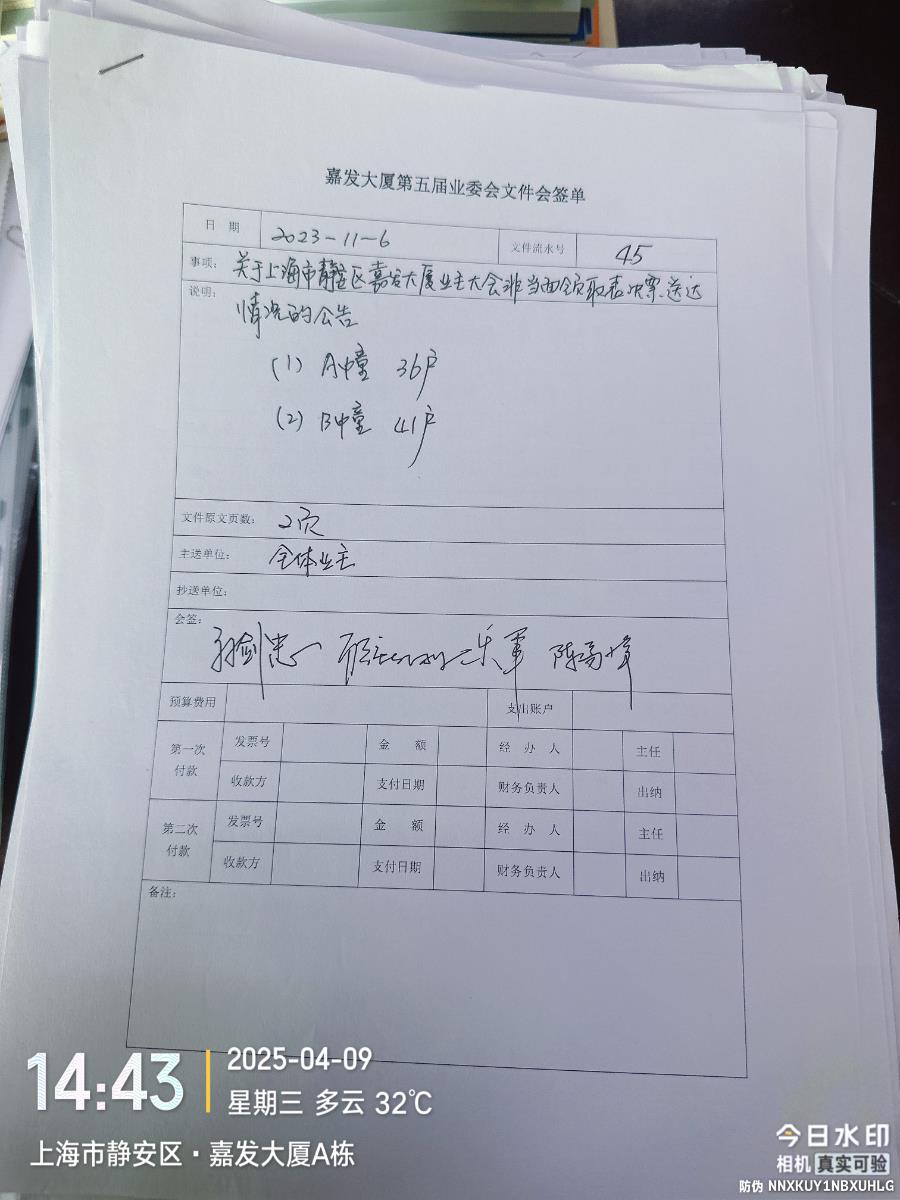 嘉发大厦第五届业委会文件会签单
日 期 2023-11-6 文件流水号 45
事项: 关于上海市静安区嘉发大厦业主大会非当面领取表决票送达
说明: 情况的公告
(1) A幢 36户
(2) B幢 41户
文件原文页数: 2页
主送单位: 全体业主
抄送单位:
会签: 乐军
预算费用 支出账户
第一次付款 发票号 金 额 经 办 人 主任
收款方 支付日期 财务负责人 出纳
第二次付款 发票号 金 额 经 办 人 主任
收款方 支付日期 财务负责人 出纳
备注:
14:43 2025-04-09
星期三 多云 32℃
上海市静安区·嘉发大厦A栋
今日水印
相机 真实可验
防伪 NNXKUY1NBXUHLG